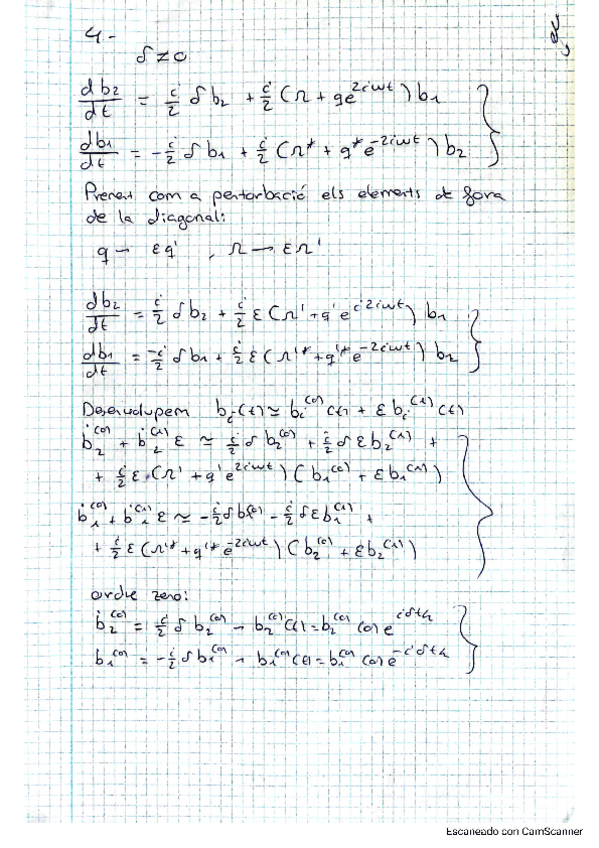 4-
δ≠0
db₂/dt = i/2 δ b₂ + i/2 (Ω + g e^{2iωt}) b₁
db₁/dt = -i/2 δ b₁ + i/2 (Ω* + g* e^{-2iωt}) b₂
Prenent com a pertorbació els elements de fora
de la diagonal:
g → εg' , Ω → εΩ'
db₂/dt = i/2 δ b₂ + i/2 ε (Ω' + g' e^{i2ωt}) b₁
db₁/dt = -i/2 δ b₁ + i/2 ε (Ω'* + g'* e^{-2iωt}) b₂
Desenvolupem b_i(t) ≃ b_i^{(0)}(t) + ε b_i^{(1)}(t)
ḃ₂^{(0)} + ḃ₂^{(1)} ε ≃ i/2 δ b₂^{(0)} + i/2 δ ε b₂^{(1)} +
+ i/2 ε · (Ω' + g' e^{2iωt}) (b₁^{(0)} + ε b₁^{(1)})
ḃ₁^{(0)} + ḃ₁^{(1)} ε ≃ -i/2 δ b₁^{(0)} - i/2 δ ε b₁^{(1)} +
+ i/2 ε (Ω'* + g'* e^{-2iωt}) (b₂^{(0)} + ε b₂^{(1)})
ordre zero:
ḃ₂^{(0)} = i/2 δ b₂^{(0)} → b₂^{(0)}(t) = b₂^{(0)}(0) e^{iδt/2}
ḃ₁^{(0)} = -i/2 δ b₁^{(0)} → b₁^{(0)}(t) = b₁^{(0)}(0) e^{-iδt/2}
Escaneado con CamScanner